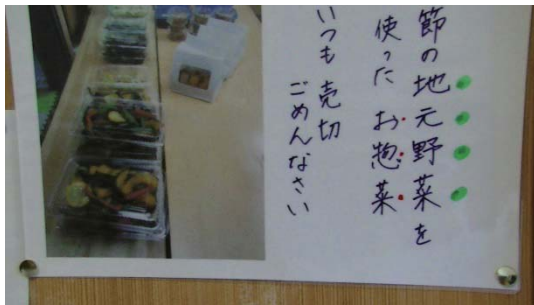 節の地元野菜を
使った お惣菜
いつも 売切
ごめんなさい